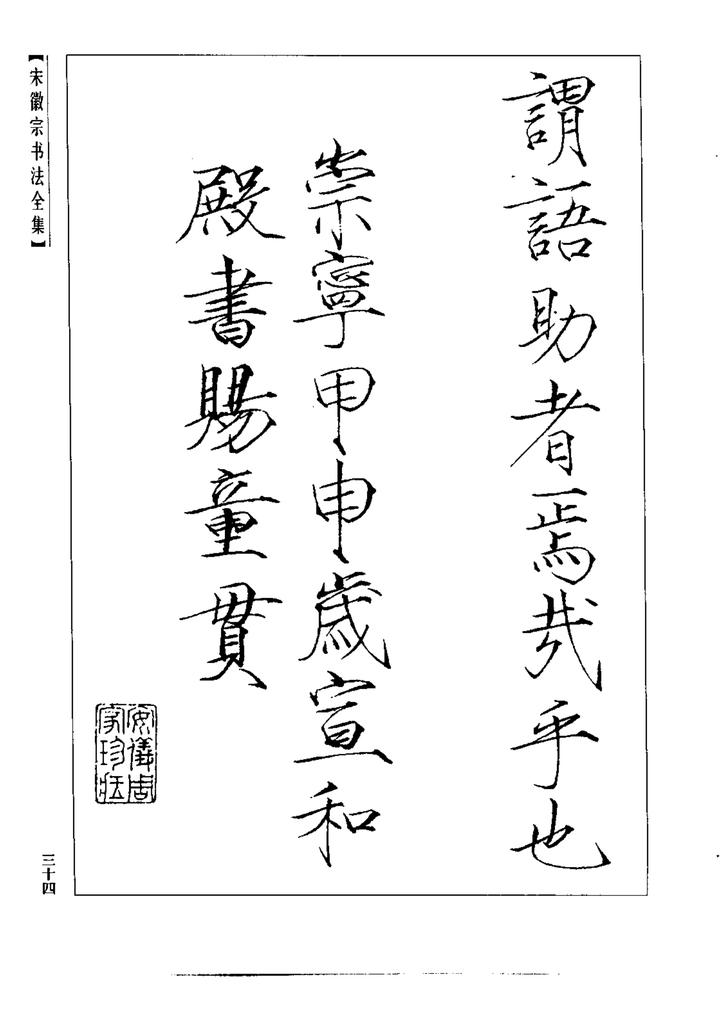 謂語助者焉哉乎也
崇寧甲申歲宣和
殿書賜童貫
安儀周
家珍藏
【宋徽宗书法全集】
三十四